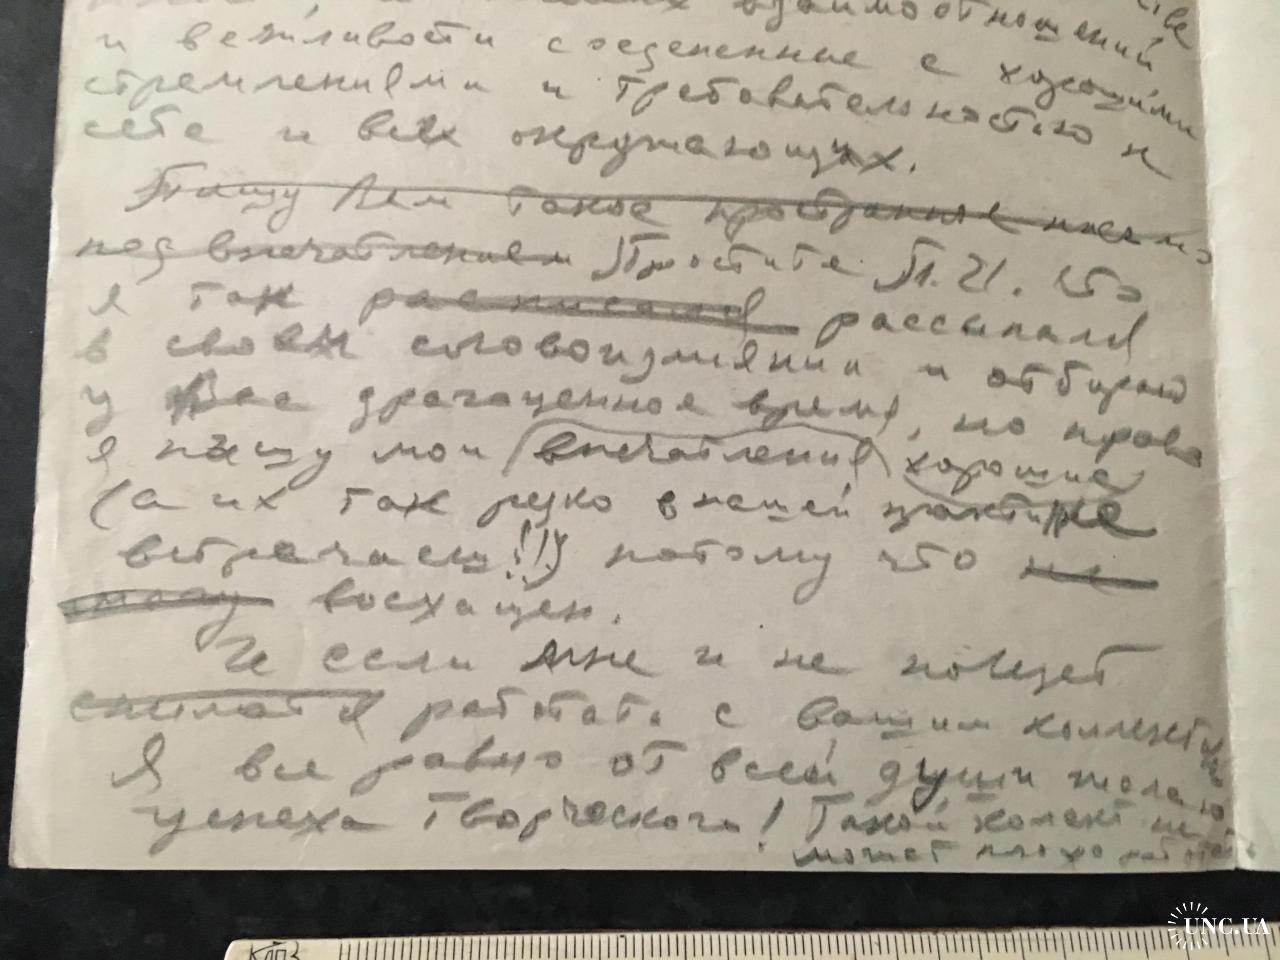 взаимоотношений
и вежливости соедененные с хорошими
стремлениями и требовательностью к
себе и всех окружающих.
Пишу Вам такое пространное письмо
под впечатлением Простите П.И. что
я так расписался рассыпался
в своем словоизлиянии и отбираю
у Вас драгаценное время, но право
я пишу мои впечатления хорошие
(а их так редко в нашей практике
встречаеш!!!) потому что не
могу восхищен.
И если мне и не повезет
работать с вашим коллективом
Я все равно от всей души желаю
успеха творческого! Такой колект не
может плохо работать
КЛП3
UNC.UA